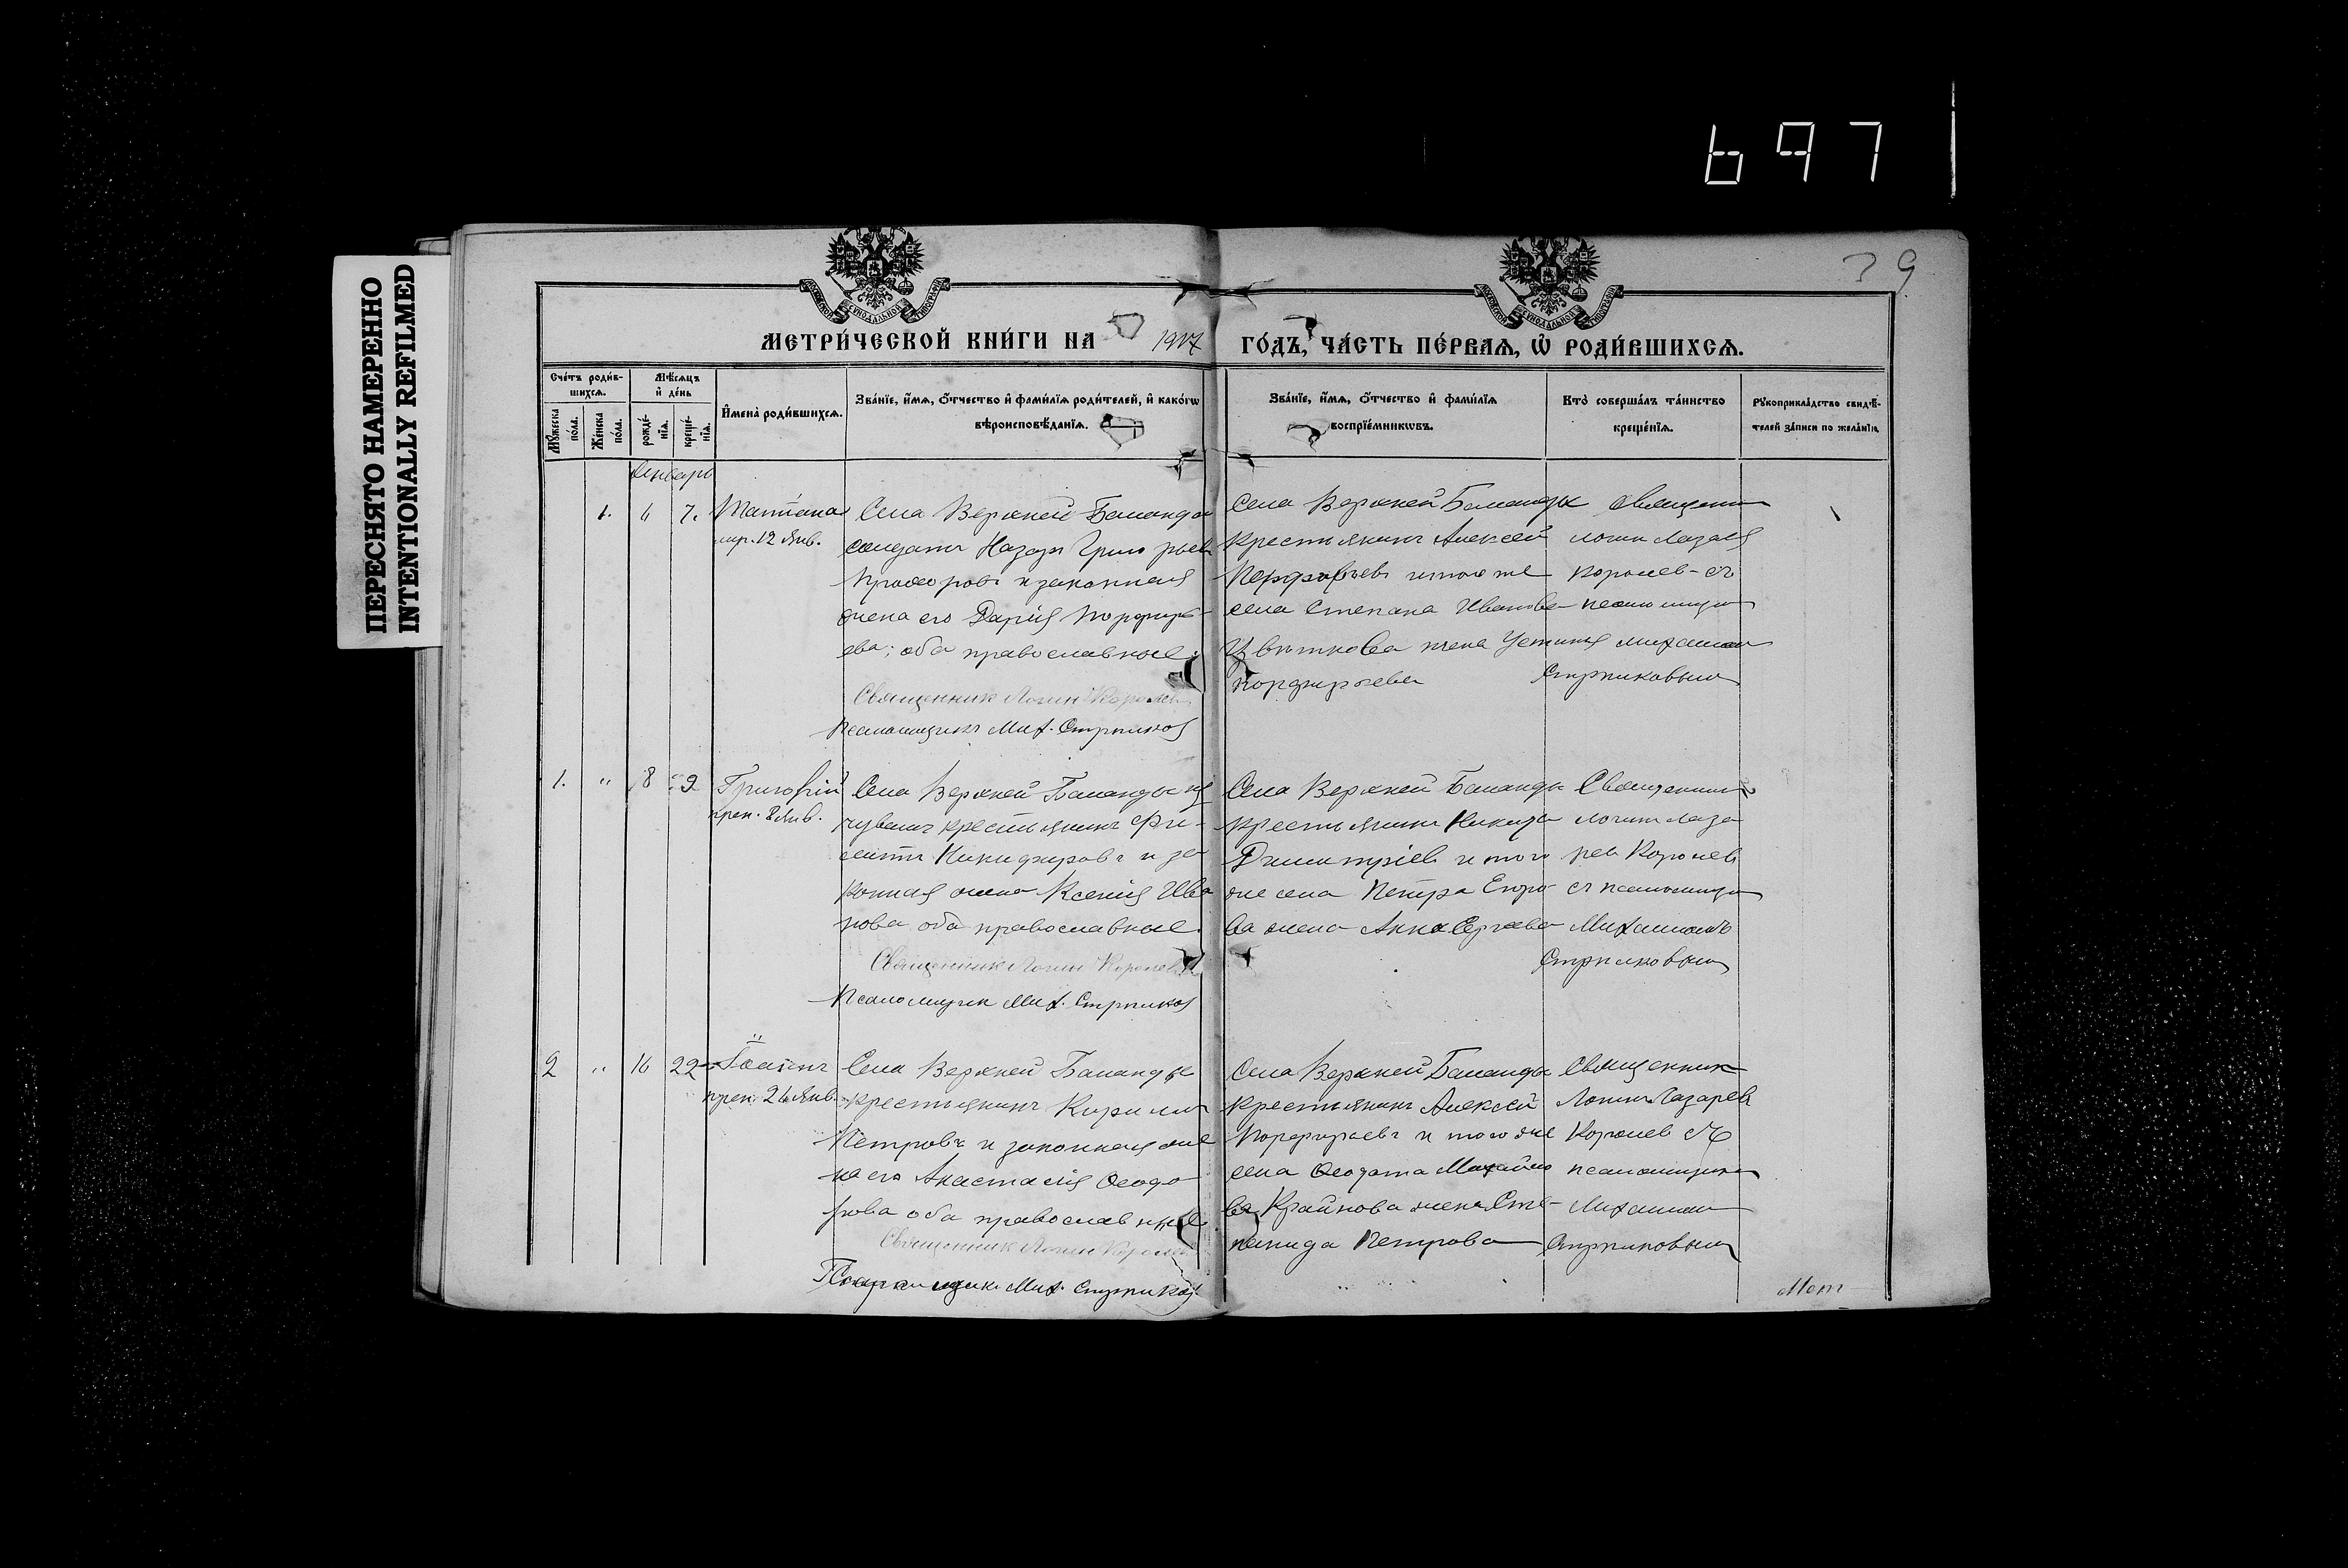 6971
ПЕРЕСНЯТО НАМЕРЕННО
INTENTIONALLY REFILMED
39
МЕТРИ́ЧЕСКОЙ КНИ́ГИ НА 1917 ГО́ДЪ, ЧА́СТЬ ПЕ́РВАѦ, Ѡ҆ РОДИ́ВШИХСѦ.
Сче́тъ роди́в-
шихсѧ.
Мѣ́сѧцъ
и҆ де́нь
Мꙋ́жеска
по́ла.
Же́нска
по́ла.
рожде́-
нїѧ.
креще́-
нїѧ.
И҆мена̀ роди́вшихсѧ.
Зва́нїе, и҆́мѧ, ѻ҆́тчество и҆ фами́лїѧ роди́телей, и҆ како́гѡ
вѣроисповѣ́данїѧ.
Зва́нїе, и҆́мѧ, ѻ҆́тчество и҆ фами́лїѧ
воспрїе́мникѡвъ.
Кто̀ соверша́лъ та́инство
креще́нїѧ.
Рꙋкоприкла́дство свидѣ́-
телей за́писи по жела́нїю.
Январь
1. 6 7. Татiана
12 Янв.
Села Верхней Баланды
солдатъ Назаръ Григорьевъ
Прохоровъ и законная
жена его Дарiя Порфирь-
ева; оба православные.
Священник Логин Королев
Псаломщикъ Мих. Стрѣлков
Села Верхней Баланды
крестьянинъ Алексей
Порфирьевъ и того же
села Степана Иванова
Цвѣткова жена Устинья
Порфирьева
Священник
Логин Лазарев
Королев - съ
псаломщиком
Михаилом
Стрѣлковым
1. " 8 9 Григорiй
8 Янв.
Села Верхней Баланды из
чуваш крестьянинъ Фи-
липпъ Никифоровъ и за-
конная жена Ксенiя Ива
нова оба православные.
Священник Логин Королев
Псаломщик Мих. Стрѣлков
Села Верхней Баланды
крестьянин Никита
Димитрiев и того
же села Петра
ва жена Анна Сергеева
Священник
Логин Лаза
рев Королев
съ псаломщиком
Михаилом
Стрѣлковым
2 " 16 22 Iоаннъ
26 Янв.
Села Верхней Баланды
крестьянинъ Кирилл
Петровъ и законная же
на его Анастасiя Ѳеодо
рова оба православные
Священник Логин Королев
Псаломщик Мих. Стрѣлков
Села Верхней Баланды
крестьянинъ Алексей
Порфирьевъ и того же
села Ѳеодота Михайло
ва Крайнова жена Сте-
панида Петрова
Священник
Логин Лазарев
Королев съ
псаломщиком
Михаилом
Стрѣлковым